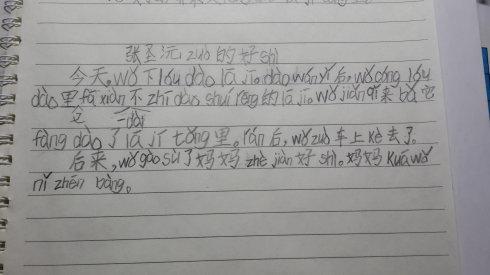 张圣沅zuò的好shì
今天,wǒ下lóu dào lā jī。dào wán yǐ后,wǒ cóng lóu
dào里fā xiàn不zhī dào shuí rēng的lā jī。wǒ jiǎn听来bǎ它
一dài
fàng dào了lā jī tǒng里。rán后,wǒ zuò车上kè去了。
后来,wǒ gào sù了妈妈zhè jiàn好shì。妈妈kuā wǒ
nǐ zhēn bàng。